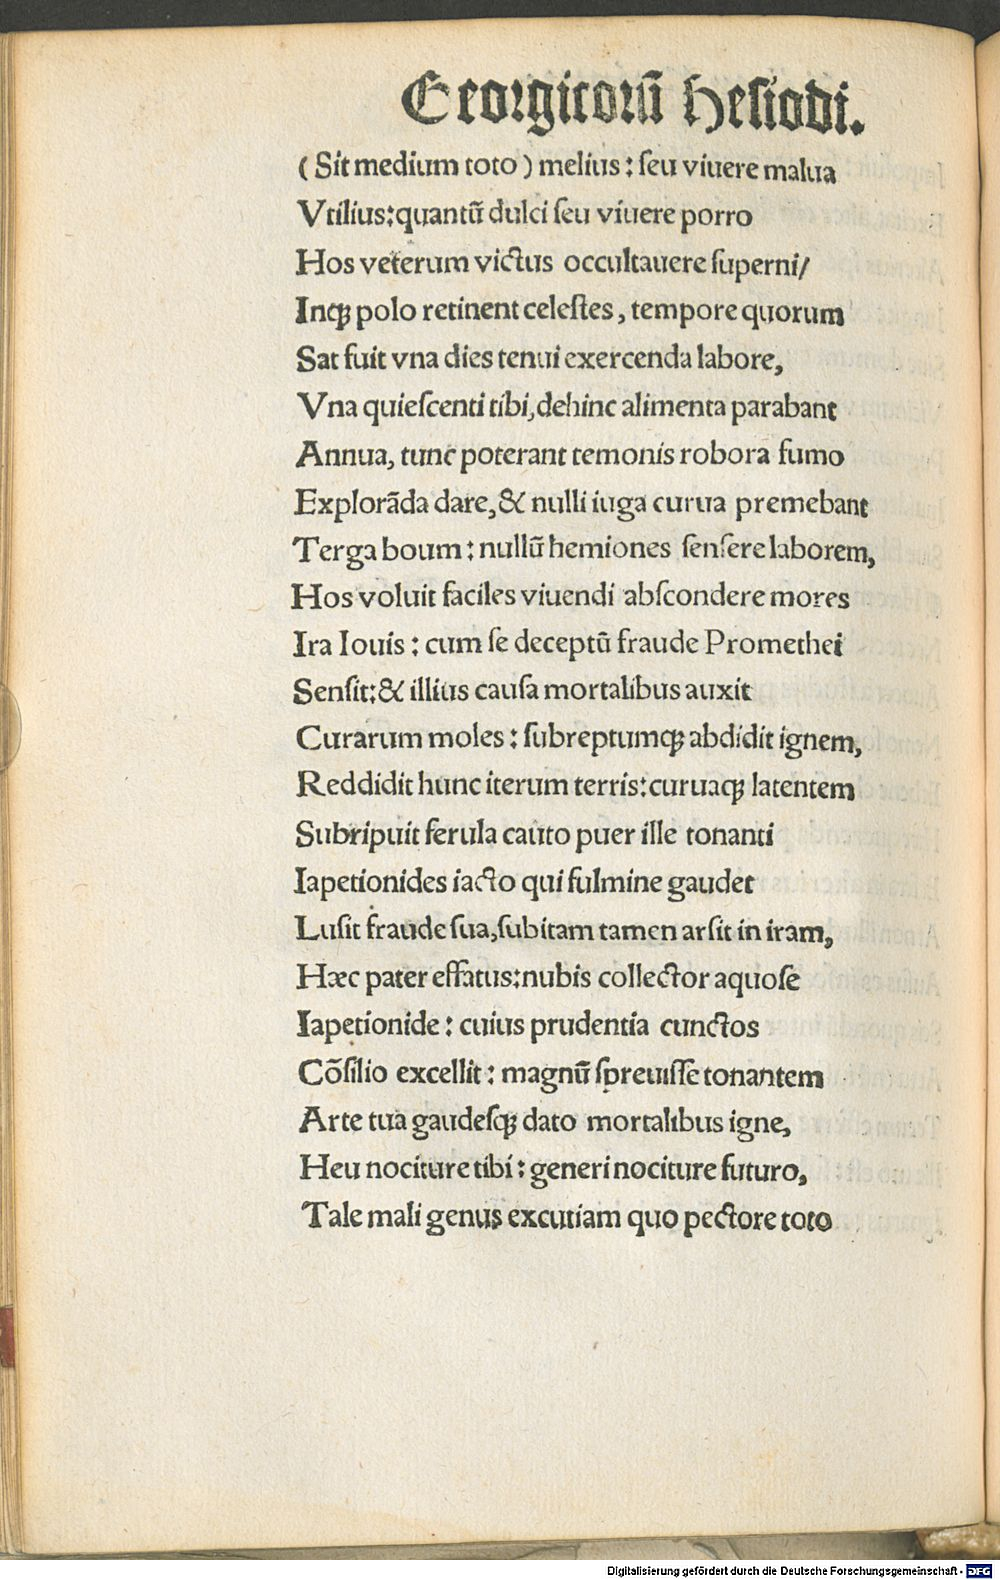 Georgicorū Hesiodi.
(Sit medium toto) melius: seu viuere malua
Vtilius: quantū dulci seu viuere porro
Hos veterum victus occultauere superni/
Inq; polo retinent celestes, tempore quorum
Sat fuit vna dies tenui exercenda labore,
Vna quiescenti tibi, dehinc alimenta parabant
Annua, tunc poterant temonis robora fumo
Explorāda dare, & nulli iuga curua premebant
Terga boum: nullū hemiones sensere laborem,
Hos voluit faciles viuendi abscondere mores
Ira Iouis: cum se deceptū fraude Promethei
Sensit: & illius causa mortalibus auxit
Curarum moles: subreptumq; abdidit ignem,
Reddidit hunc iterum terris: curuaq; latentem
Subripuit ferula cauto puer ille tonanti
Iapetionides iacto qui fulmine gaudet
Lusit fraude sua, subitam tamen arsit in iram,
Hæc pater effatus: nubis collector aquose
Iapetionide: cuius prudentia cunctos
Cōsilio excellit: magnū spreuisse tonantem
Arte tua gaudesq; dato mortalibus igne,
Heu nociture tibi: generi nociture futuro,
Tale mali genus excutiam quo pectore toto
Digitalisierung gefördert durch die Deutsche Forschungsgemeinschaft - DFG